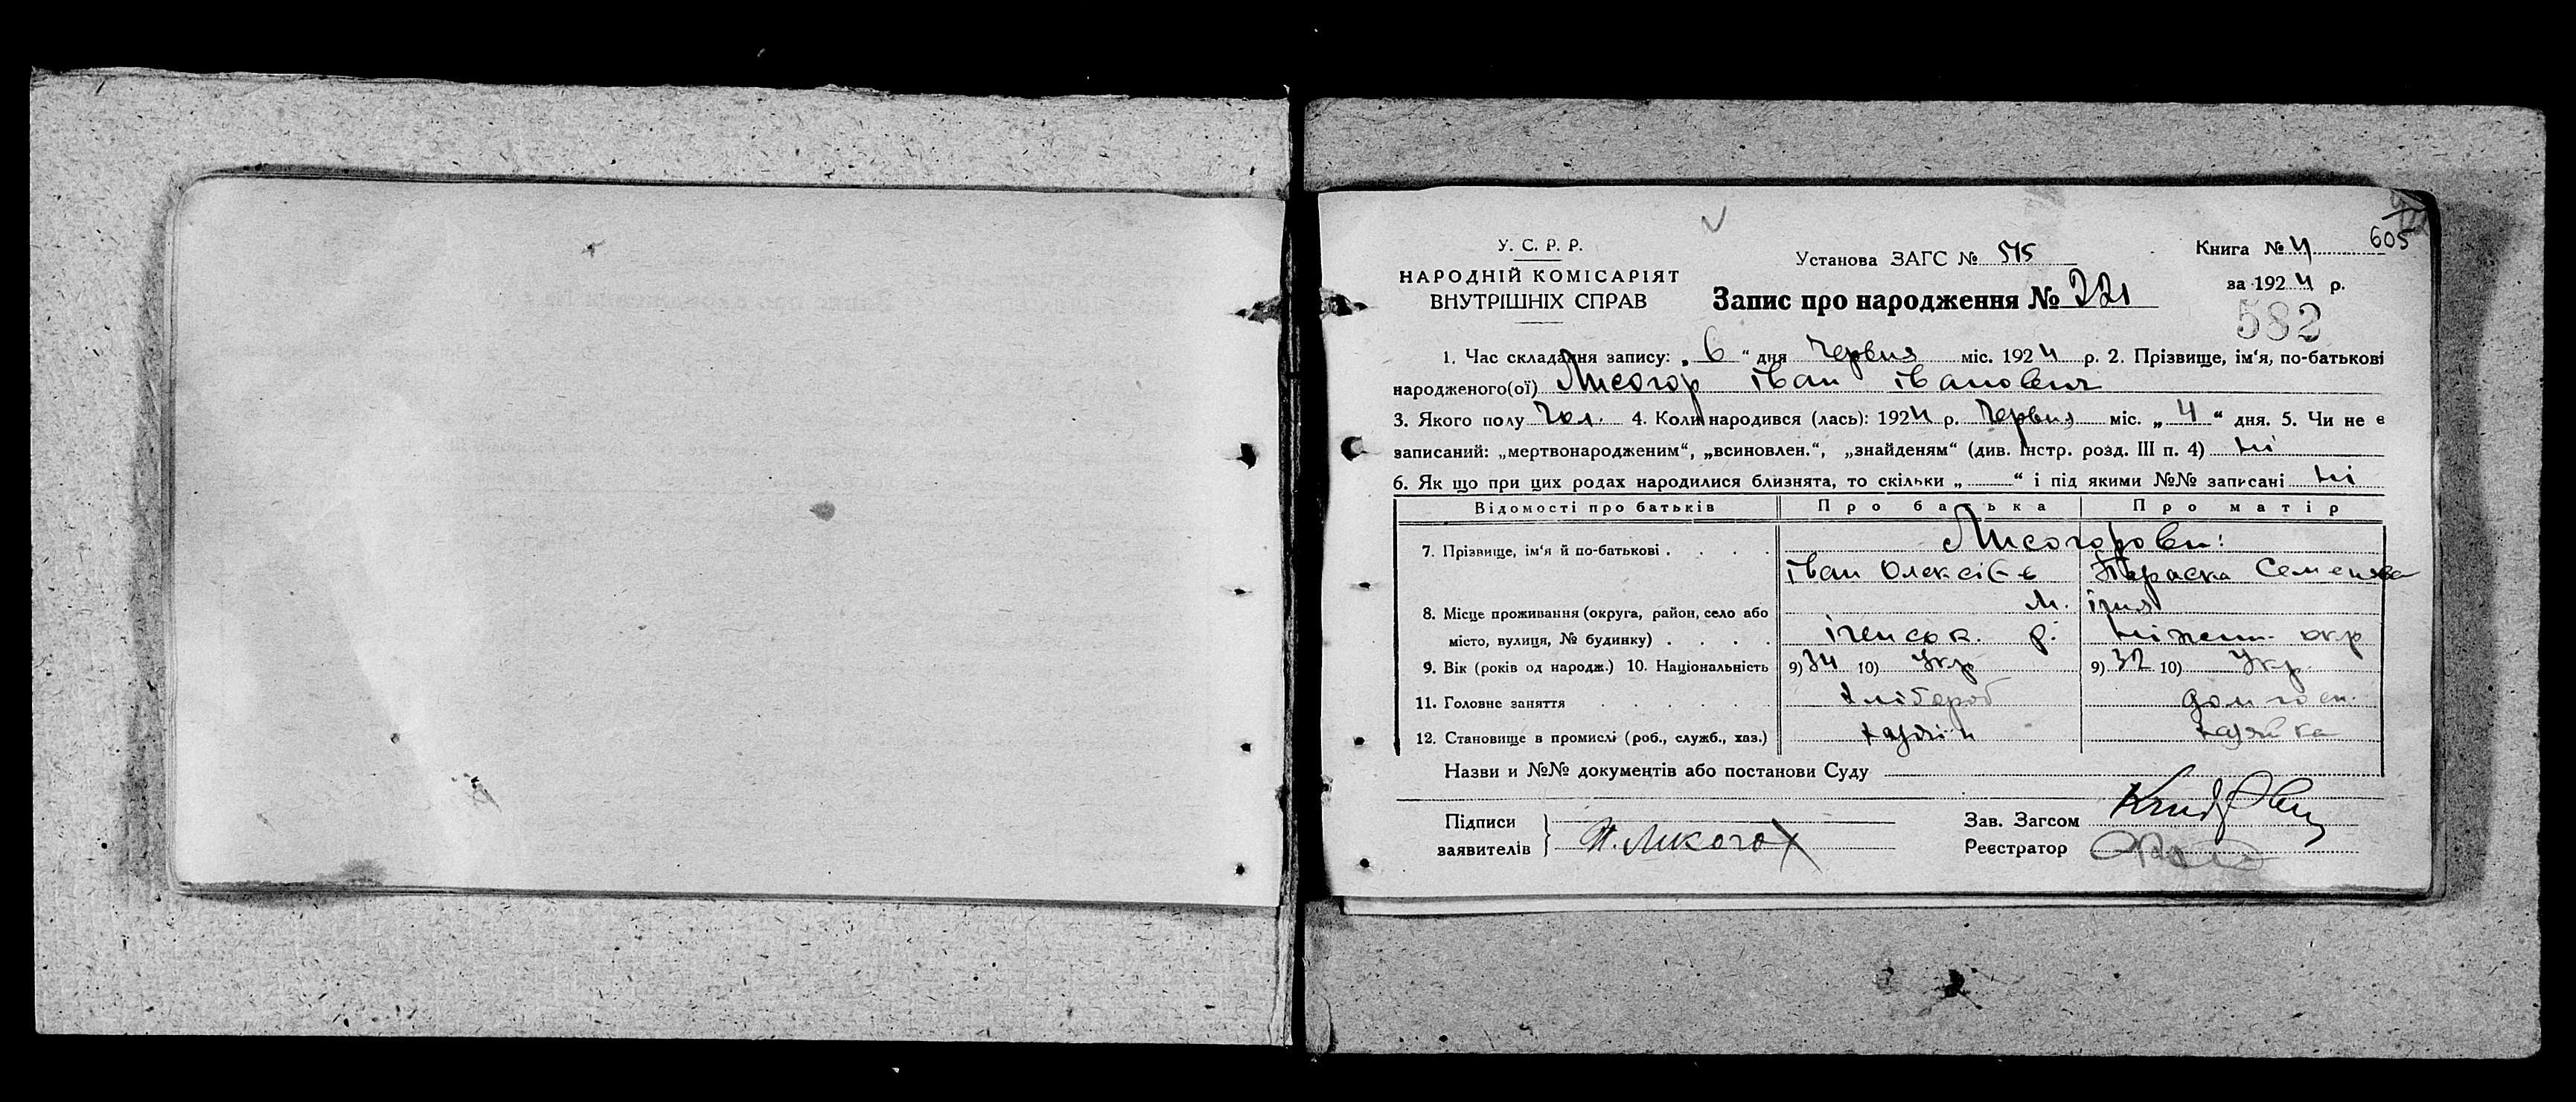 605
У. С. Р. Р.
НАРОДНІЙ КОМІСАРІЯТ
ВНУТРІШНІХ СПРАВ
Установа ЗАГС № 515
Книга № 4
за 1924 р.
Запис про народження № 221
582
1. Час складання запису: „ 6 “ дня Червня міс. 1924 р. 2. Прізвище, ім‘я, по-батькові
народженого(ої) Лисогор Іван Іванович
3. Якого полу Чол. 4. Коли народився (лась): 1924 р. Червня міс. „ 4 “ дня. 5. Чи не є
записаний: „мертвонародженим“, „всиновлен.“, „знайденям“ (див. Інстр. розд. III п. 4) Ні
6. Як що при цих родах народилися близнята, то скільки „ “ і під якими №№ записані Ні
Відомості про батьків Про батька Про матір
7. Прізвище, ім‘я й по-батькові . . . . Лисогорови:
Іван Олексієв Параска Семенівна
8. Місце проживання (округа, район, село або м. Ічня
місто, вулиця, № будинку) . . . . Іченськ. р. Ніжен. окр
9. Вік (років од народж.) 10. Національність 9) 34 10) Укр 9) 32 10) Укр.
11. Головне заняття . . . . . . хлібороб дом госп.
12. Становище в промислі (роб., служб., хаз.) хазяїн хазяйка
Назви и №№ документів або постанови Суду
Підписи
заявителів } Лисогор
Зав. Загсом
Реєстратор